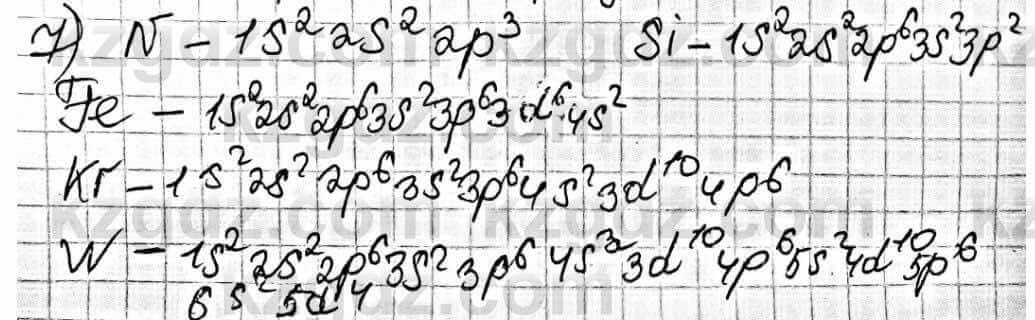 7) N – 1s² 2s² 2p³ Si – 1s²2s²2p⁶3s²3p²
Fe – 1s²2s²2p⁶3s²3p⁶3d⁶4s²
Kr – 1s²2s²2p⁶3s²3p⁶4s²3d¹⁰4p⁶
W – 1s²2s²2p⁶3s²3p⁶4s²3d¹⁰4p⁶5s²4d¹⁰5p⁶
6s²5d⁴